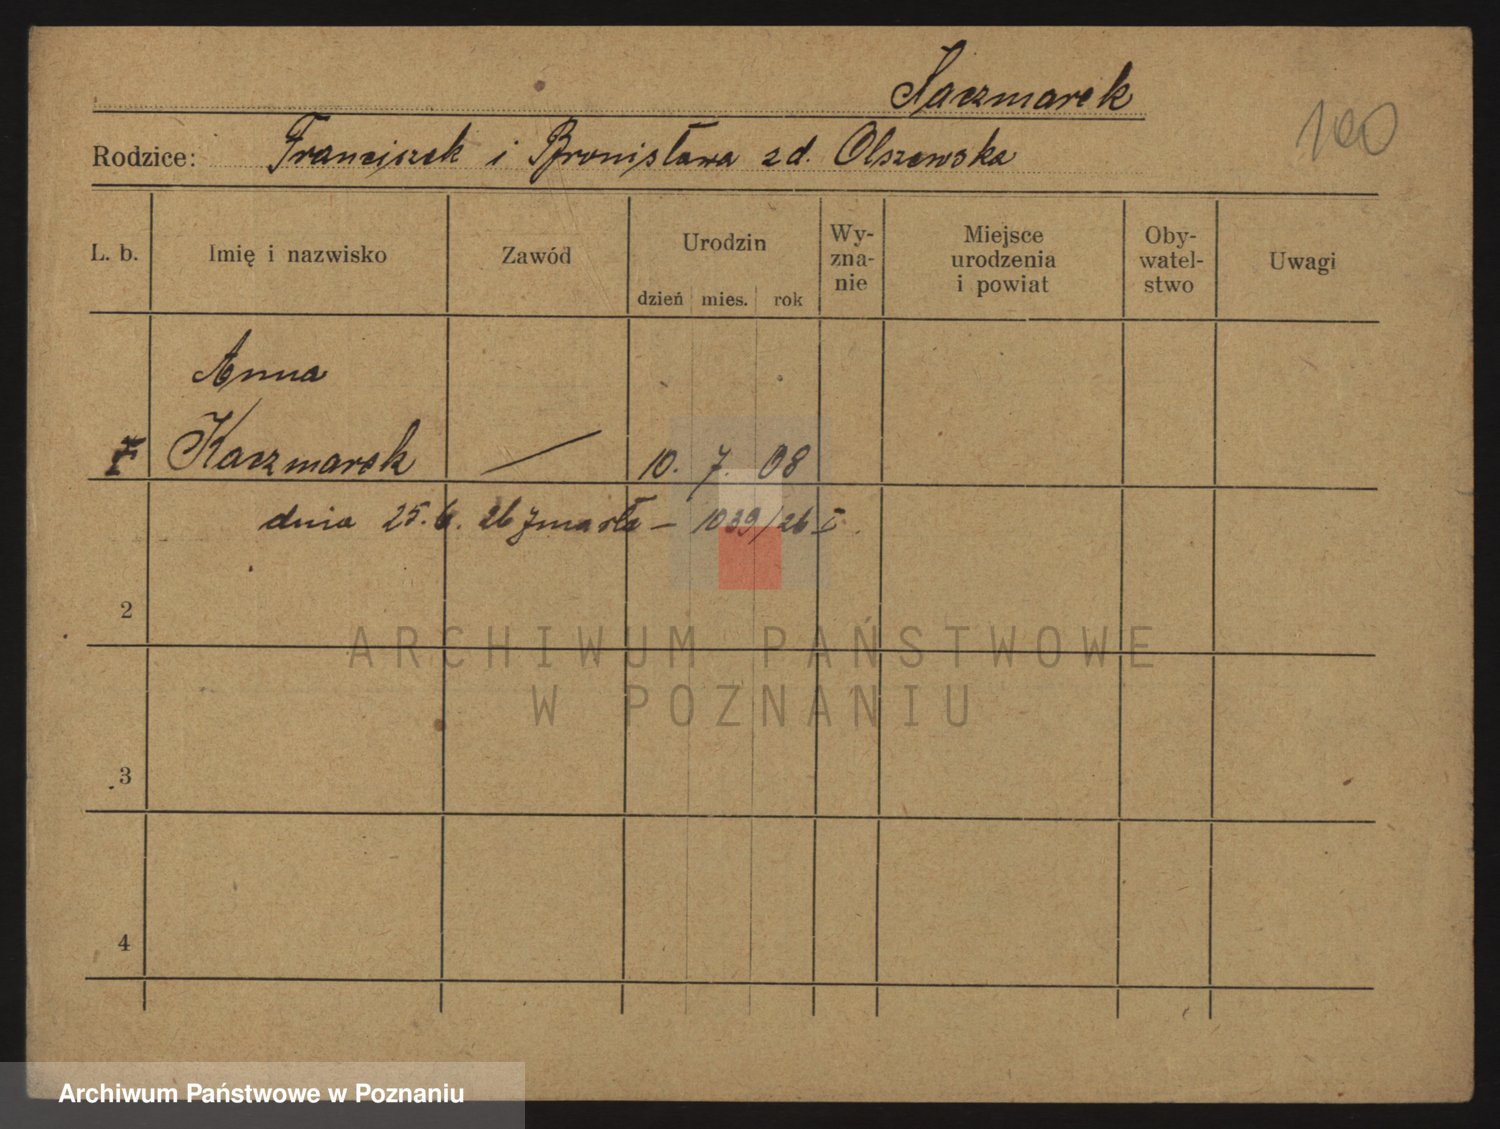 Kaczmarek
100
Rodzice: Franciszek i Bronisława zd. Olszewska
L. b. Imię i nazwisko Zawód Urodzin dzień mies. rok Wy-zna-nie Miejsce urodzenia i powiat Oby-watel-stwo Uwagi
Anna
Kaczmarek — 10. 7. 08
dnia 25. 6. 26 zmarła – 1039/26 I.
2
ARCHIWUM PAŃSTWOWE
W POZNANIU
3
4
Archiwum Państwowe w Poznaniu